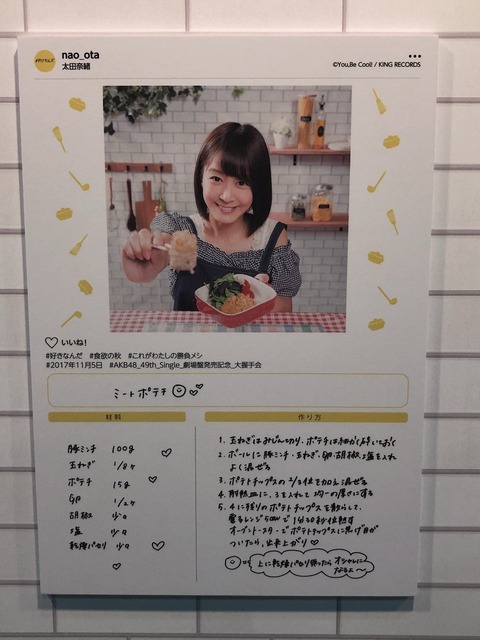 #好きなんだ
nao_ota
太田奈緒
©You,Be Cool! / KING RECORDS
いいね!
#好きなんだ #食欲の秋 #これがわたしの勝負メシ
#2017年11月5日 #AKB48_49th_Single_劇場盤発売記念_大握手会
ミートポテチ
材料
豚ミンチ 100g
玉ねぎ 1/8ヶ
ポテチ 15g
卵 1/2ヶ
胡椒 少々
塩 少々
乾燥パセリ 少々
作り方
1. 玉ねぎはみじん切り、ポテチは細かく砕いておく
2. ボールに豚ミンチ・玉ねぎ・卵・胡椒・塩を入れ
よく混ぜる
3. ポテトチップスの2/3位を加え混ぜる
4. 耐熱皿に、3を入れて均一の厚さにする
5. 4に残りのポテトチップスを散らして、
電子レンジ500Wで1分30秒位熱す
オーブントースターでポテトチップスに焦げ目が
ついたら、出来上がり
上に乾燥パセリ振ったらオシャレに
なるよ〜